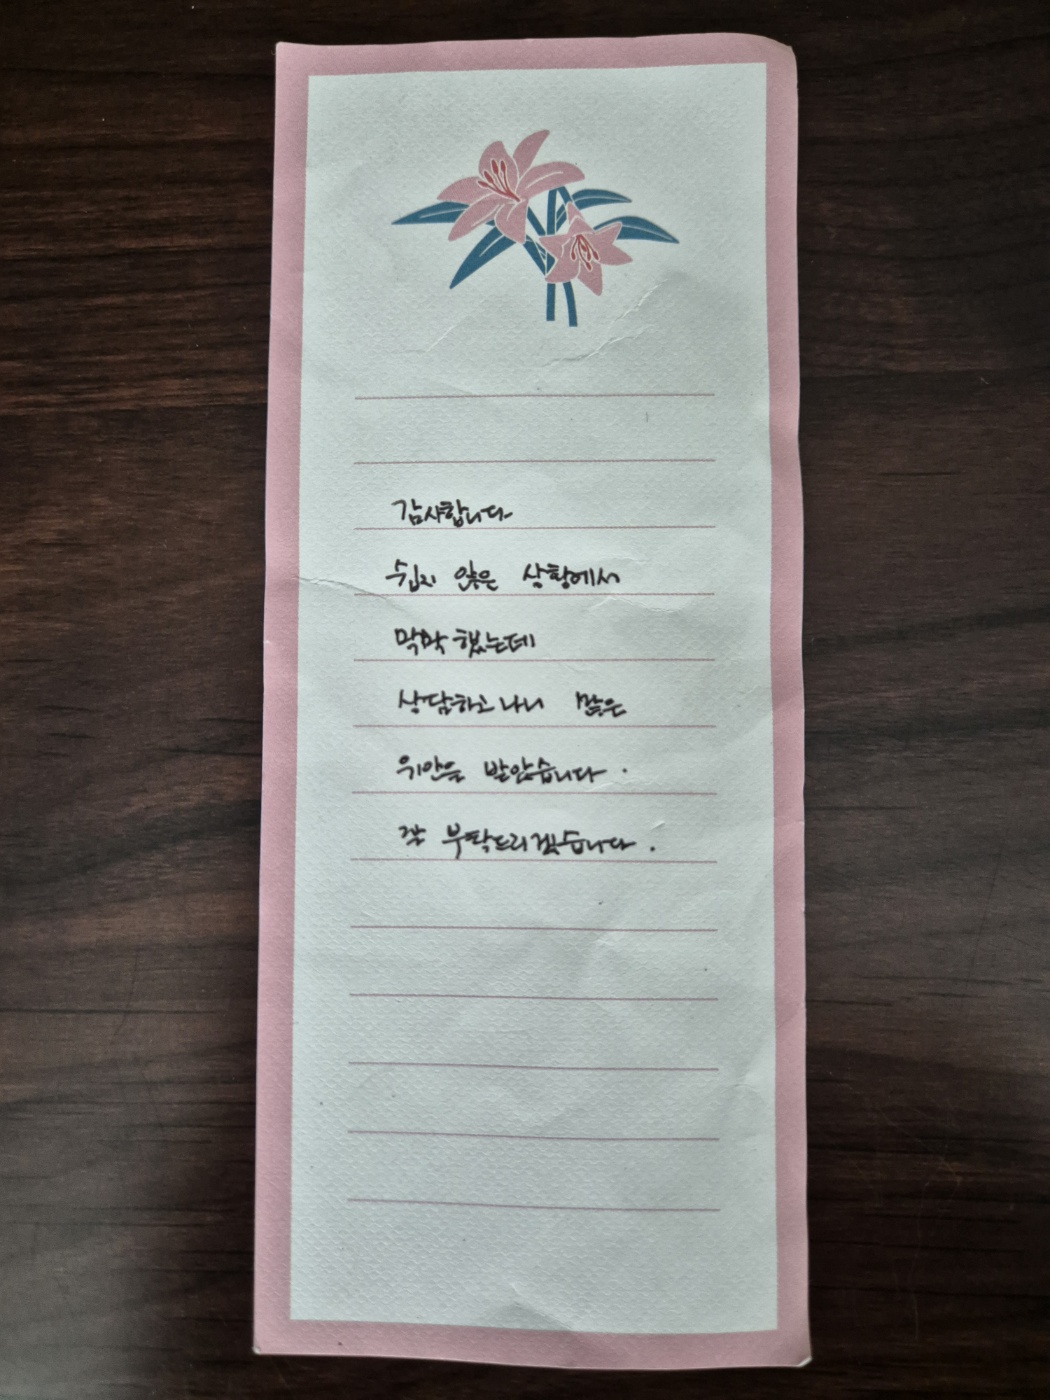 감사합니다
쉽지 않은 상황에서
막막했는데
상담하고 나니 많은
위안을 받았습니다.
잘 부탁드리겠습니다.